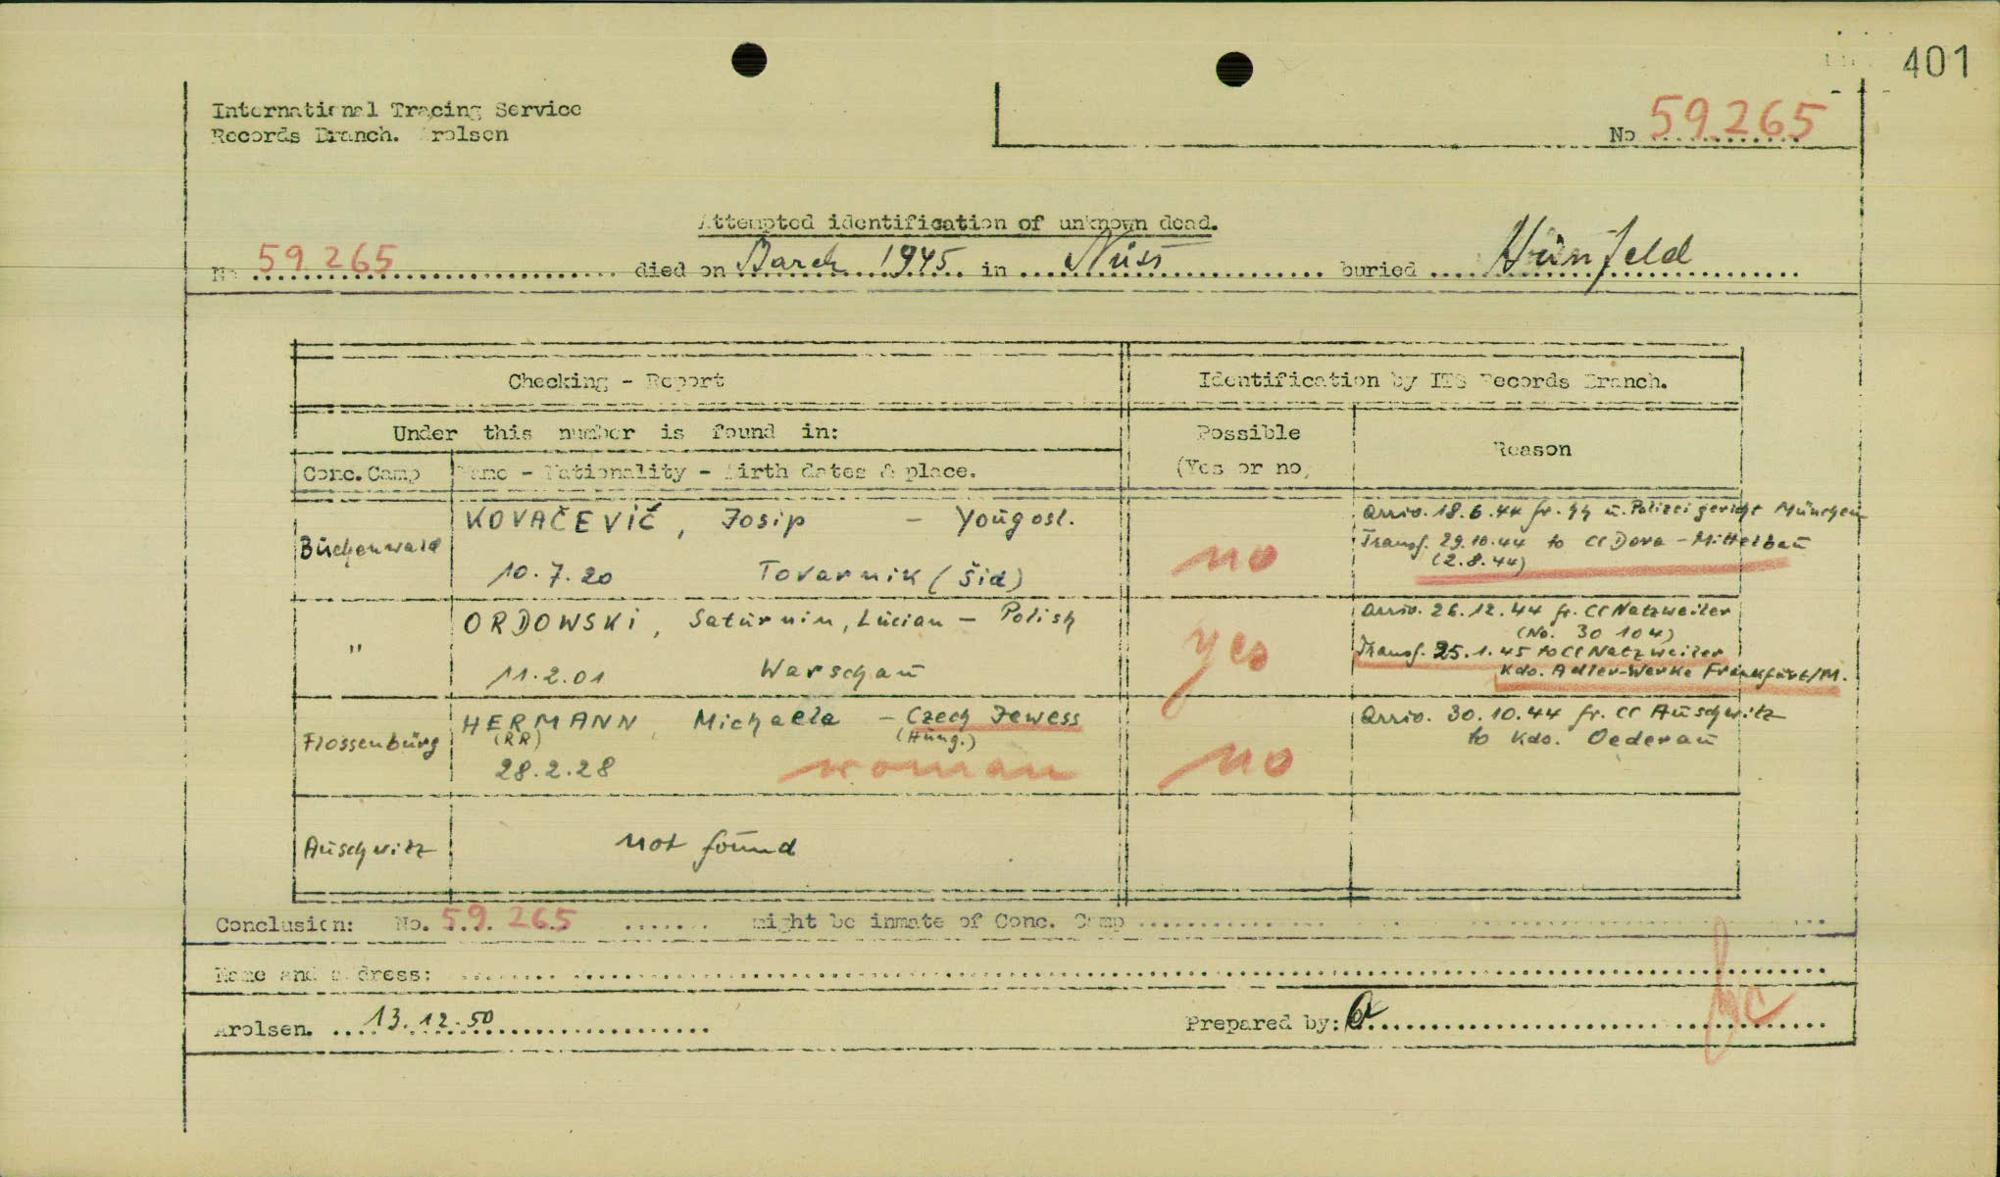 401
International Tracing Service
Records Branch. Arolsen
No 59265
Attempted identification of unknown dead.
No 59265 died on March 1945 in Nüst buried Hünfeld
Checking - Report
Identification by ITS Records Branch.
Under this number is found in:
Possible
(Yes or no)
Reason
Conc. Camp
Name - Nationality - Birth dates & place.
Buchenwald
KOVAČEVIČ, Josip - Yougosl.
10.7.20 Tovarnik (Šid)
no
Arriv. 18.6.44 fr. SS u. Polizeigericht München
Transf. 29.10.44 to CC Dora - Mittelbau
(2.8.44)
"
ORDOWSKI, Saturnin, Lucian - Polish
11.2.01 Warschau
yes
Arriv. 26.12.44 fr. CC Natzweiler
(No. 30 104)
Transf. 25.1.45 to CC Natzweiler
Kdo. Adler-Werke Frankfurt/M.
Flossenbürg
HERMANN Michaela - Czech Jewess
(RR) (Hung.)
28.2.28 woman
no
Arriv. 30.10.44 fr. CC Auschwitz
to Kdo. Oederau
Auschwitz
not found
Conclusion: No. 59.265 might be inmate of Conc. Camp
Name and address:
Arolsen. 13.12.50
Prepared by: